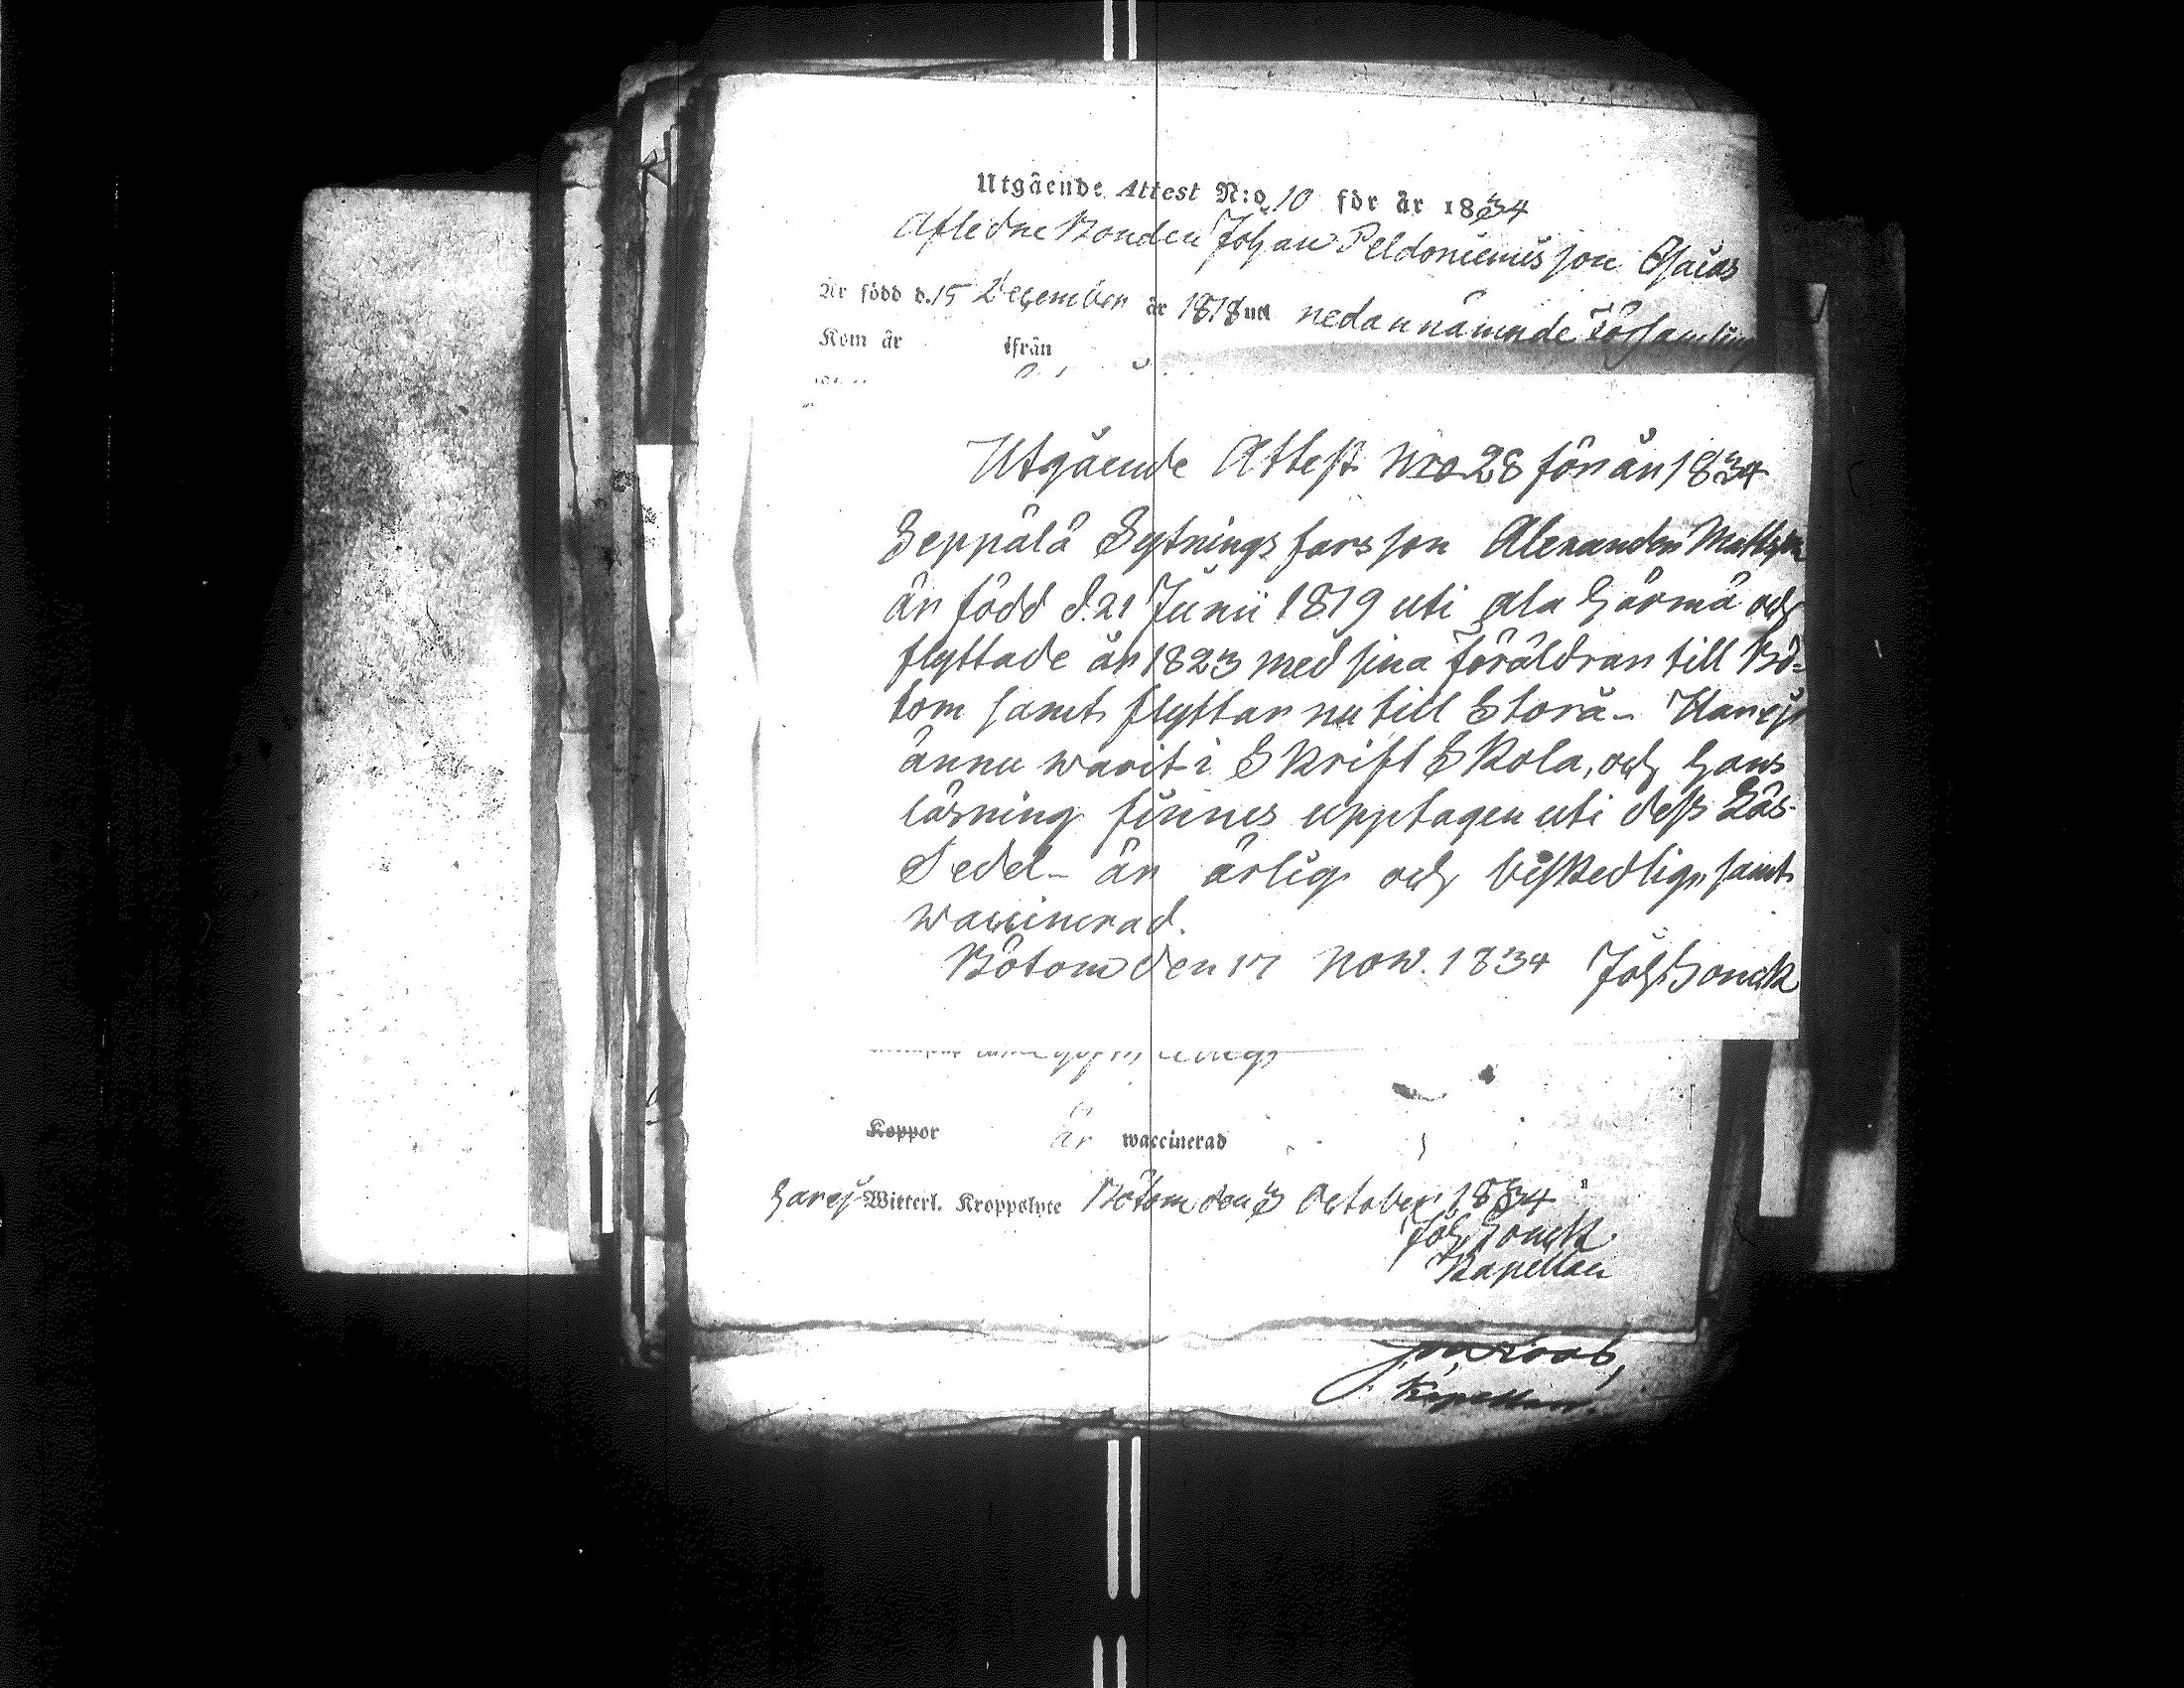 Utgående Attest N:o 10 för år 1834
Afledne Bonden Johan Peldoniemis son Esaias
Är född d. 15 December år 1818 uti nedannämnde Församling
Kom år ifrån
Utgående Attest Nro 28 för år 1834
Seppälä Sytnings fars son Alexander Mattsson
är född d. 21 Junii 1819 uti ala Härmä och
flyttade år 1823 med sina föräldrar till Bö=
tom samt flyttar nu till Storå - Har ej
ännu warit i Skrift Skola, och hans
läsning finnes upptagen uti dess Läs-
Sedel - är ärlig och beskedlig, samt
waccinerad.
Bötom den 17 Now. 1834 Joh. Honck
Koppor är waccinerad
har ej Witterl. Kroppslyte Bötom den 3 October 1834
Joh. Honck
Kapellan
Kapellan.